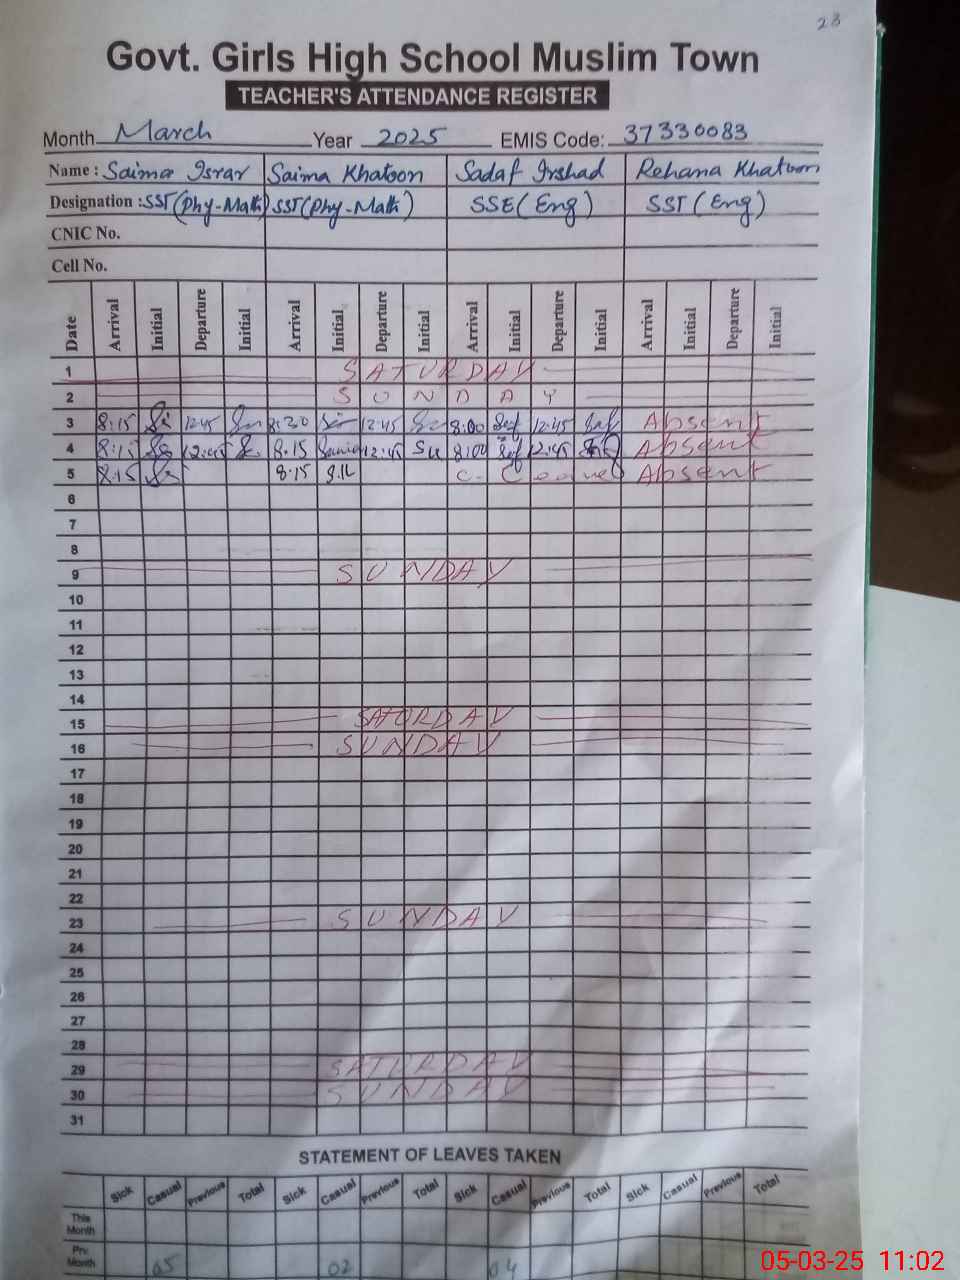 23
Govt. Girls High School Muslim Town
TEACHER'S ATTENDANCE REGISTER
Month March Year 2025 EMIS Code: 37330083
Name : Saima Israr Saima Khatoon Sadaf Irshad Rehana Khatoon
Designation : SST (Phy-Math) SST (Phy-Math) SSE (Eng) SST (Eng)
CNIC No.
Cell No.
Date Arrival Initial Departure Initial Arrival Initial Departure Initial Arrival Initial Departure Initial Arrival Initial Departure Initial
1 SATURDAY
2 SUNDAY
3 8:15 12:45 8:20 12:45 8:00 12:45 Absent
4 8:15 12:45 8.15 12:45 8:00 12:45 Absent
5 8:15 8.15 C. Leave Absent
6
7
8
9 SUNDAY
10
11
12
13
14
15 SATURDAY
16 SUNDAY
17
18
19
20
21
22
23 SUNDAY
24
25
26
27
28
29 SATURDAY
30 SUNDAY
31
STATEMENT OF LEAVES TAKEN
Sick Casual Previous Total Sick Casual Previous Total Sick Casual Previous Total Sick Casual Previous Total
This Month
Pri: Month 05 02 04
05-03-25 11:02